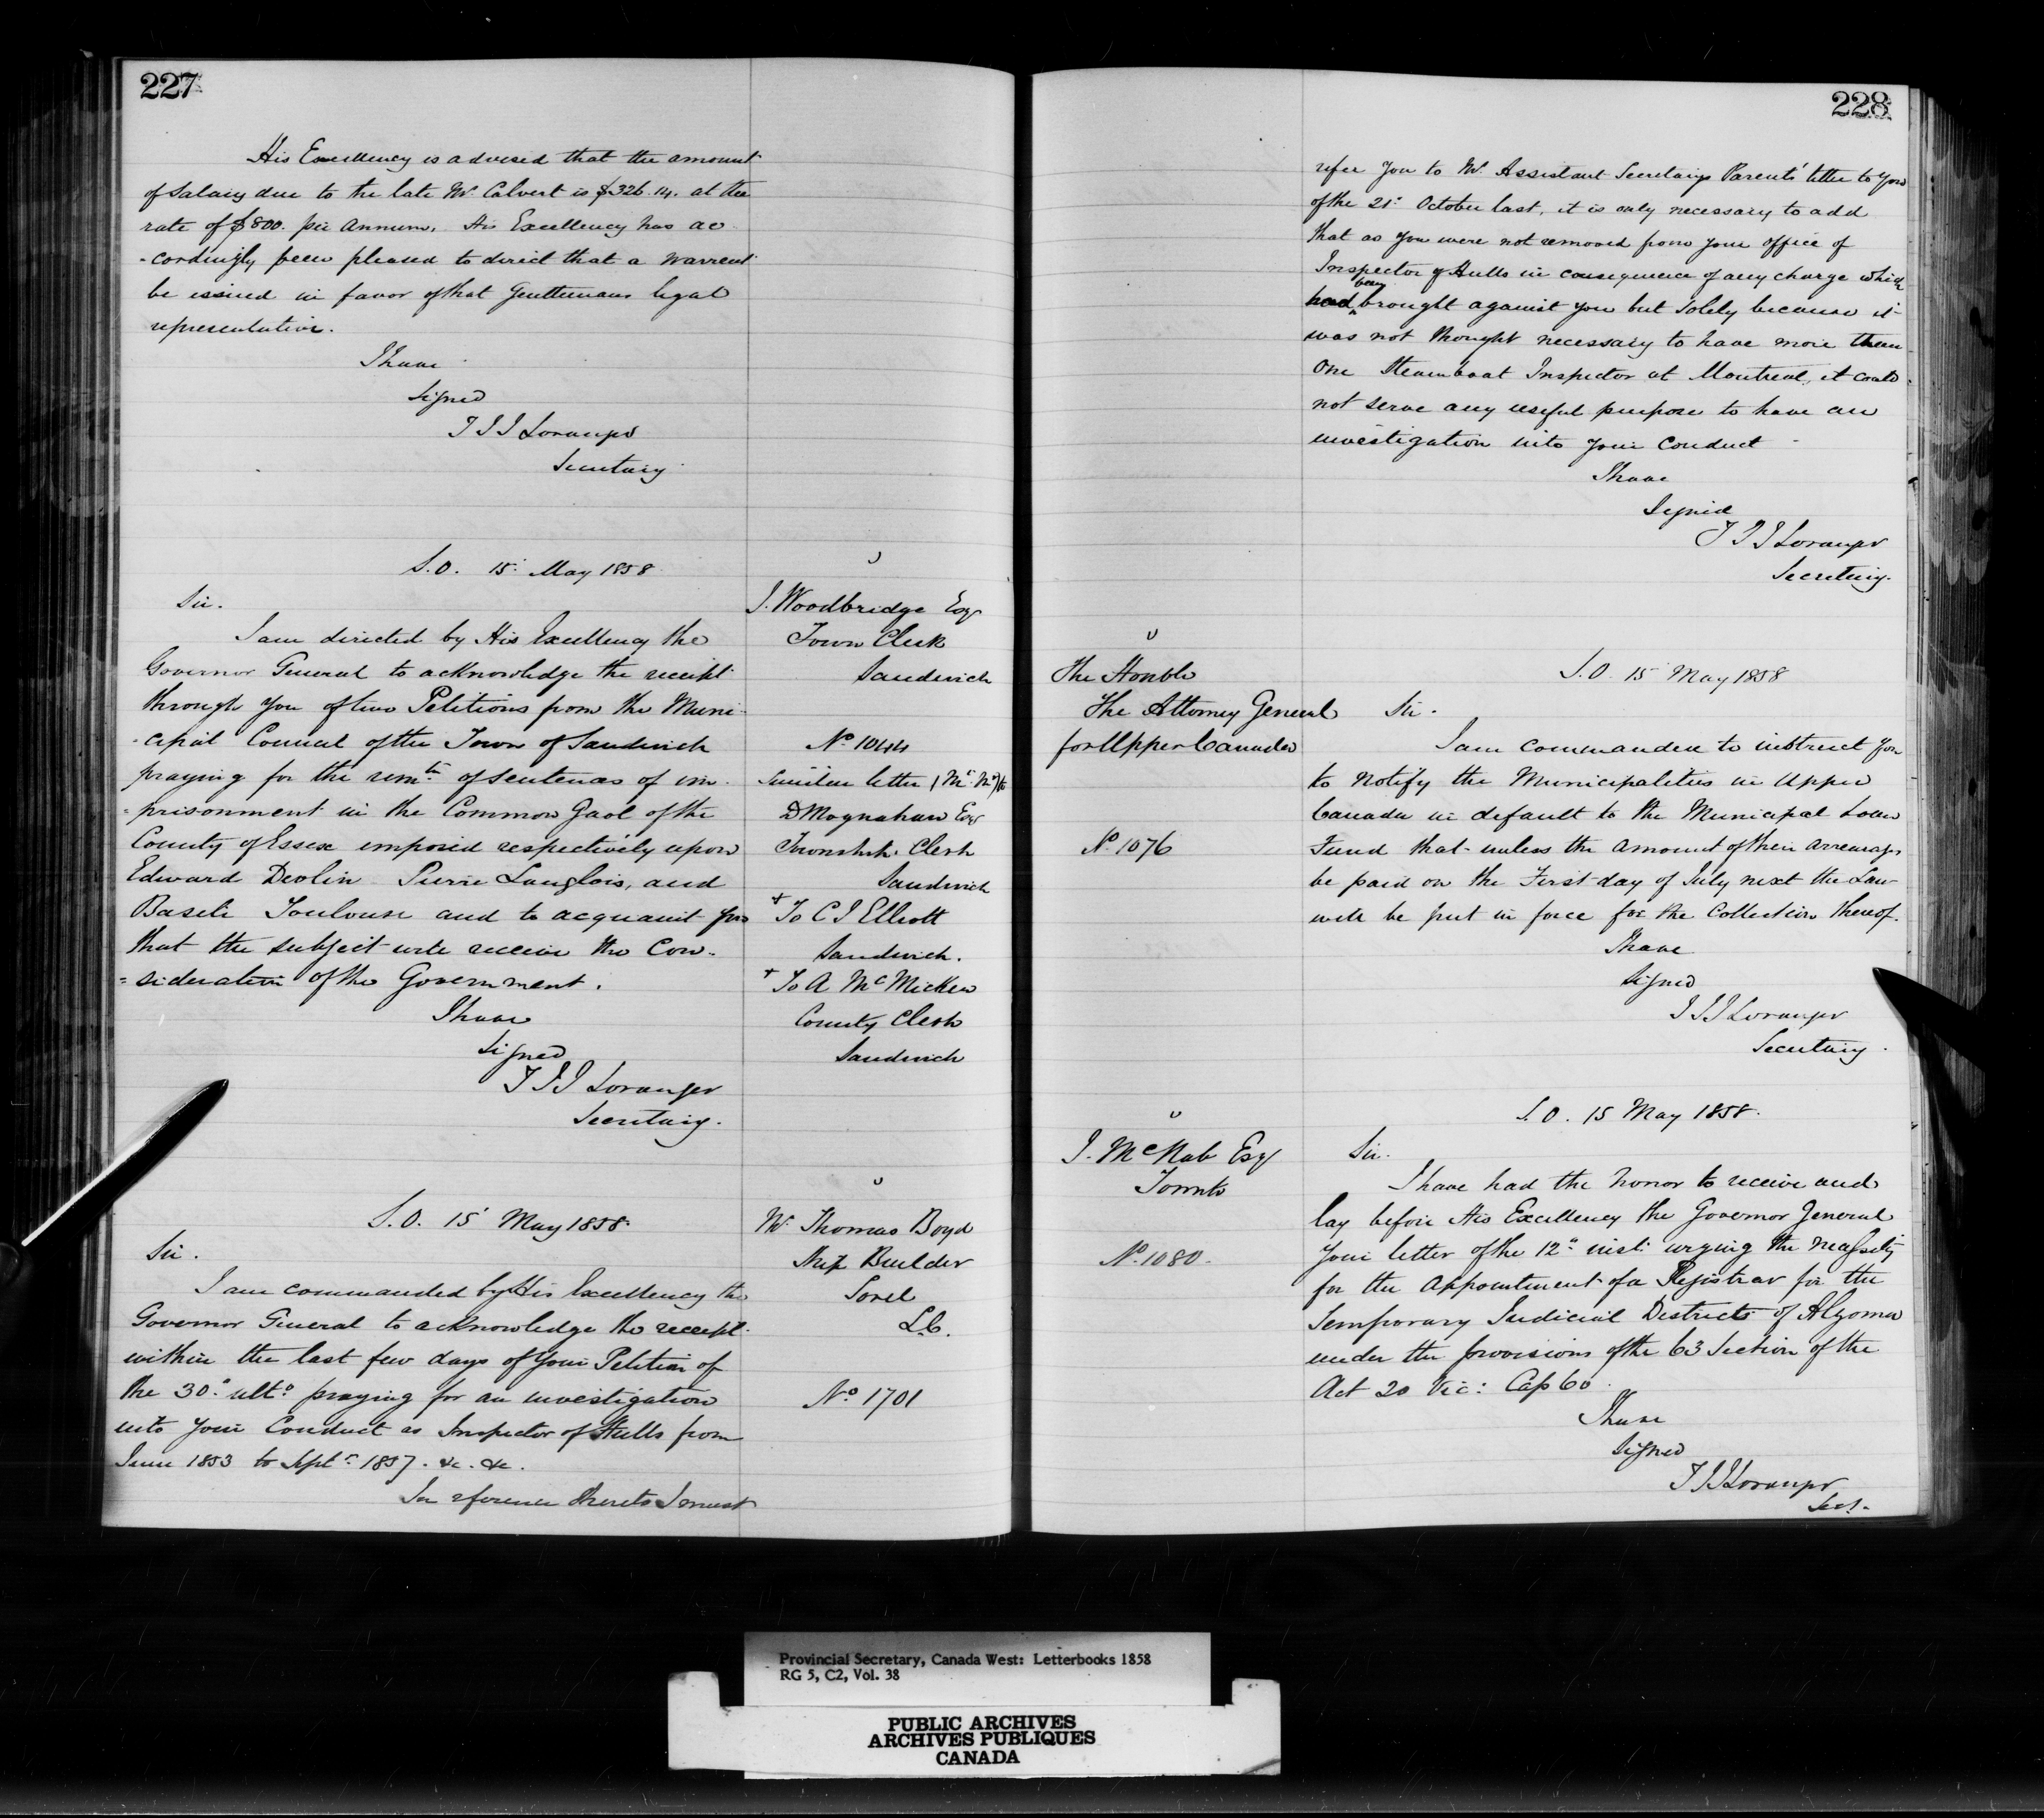 227
His Excellency is advised that the amount
of Salary due to the late Mr. Calvert is $326.14. at the
rate of $800. per Annum. His Excellency has ac
-cordingly been pleased to direct that a Warrent
be issued in favor of that Gentlemans legal
representative.
I have
Signed
T J J Loranger
Secretary.
S.O. 15 May 1858
Sir.
I am directed by His Excellency the
Governor General to acknowledge the receipt
through you of two Petitions from the Muni-
-cipal Council of the Town of Sandwich
praying for the remn. of sentences of im-
=prisonment in the Common Gaol of the
County of Essex imposed respectively upon
Edward Devlin Pierre Langlois, and
Basile Toulouse and to acquaint you
that the subject will receive the Con-
=sideration of the Government.
I have
Signed
T J J Loranger
Secretary.
J. Woodbridge Esqr
Town Clerk
Sandwich
No 1044
Similar letter
D Moynahan Esqr
Townshp. Clerk
Sandwich
+ To C J Elliott
Sandwich.
+ To A McMicken
County Clerk
Sandwich
S.O. 15 May 1858.
Sir.
I am commanded by His Excellency the
Governor General to acknowledge the receipt
within the last few days of your Petition of
the 30" ulto. praying for an investigation
into your Conduct as Inspector of Hulls from
June 1853 to Sept. 1857. &c. &c.
In reference thereto I must
Mr. Thomas Boyd
Ship Builder
Sorel
L.C.
No 1701
228
refer you to Mr. Assistant Secretary Parents' letter to you
of the 21" October last, it is only necessary to add
that as you were not removed from your office of
Inspector of Hulls in consequence of any charge which
had been brought against you but solely because it
was not thought necessary to have more than
One Steamboat Inspector at Montreal, it could
not serve any useful purpose to have an
investigation into your Conduct
I have
Signed
T J J Loranger
Secretary.
The Honble
The Attorney General
for Upper Canada
No 1076
S.O. 15 May 1858
Sir.
I am commanded to instruct you
to notify the Municipalities in Upper
Canada in default to the Municipal Loan
Fund that unless the amount of their arrearages
be paid on the First day of July next the Law
will be put in force for the Collection thereof.
I have
Signed
T J J Loranger
Secretary.
J. McNab Esqr
Toronto
No. 1080.
S.O. 15 May 1858.
Sir.
I have had the honor to receive and
lay before His Excellency the Governor General
your letter of the 12" inst. urging the necessity
for the appointment of a Registrar for the
Temporary Judicial Districts of Algoma
under the provisions of the 63 Section of the
Act 20 Vic: Cap 60.
I have
Signed
T J J Loranger
Secy.
Provincial Secretary, Canada West: Letterbooks 1858
RG 5, C2, Vol. 38
PUBLIC ARCHIVES
ARCHIVES PUBLIQUES
CANADA